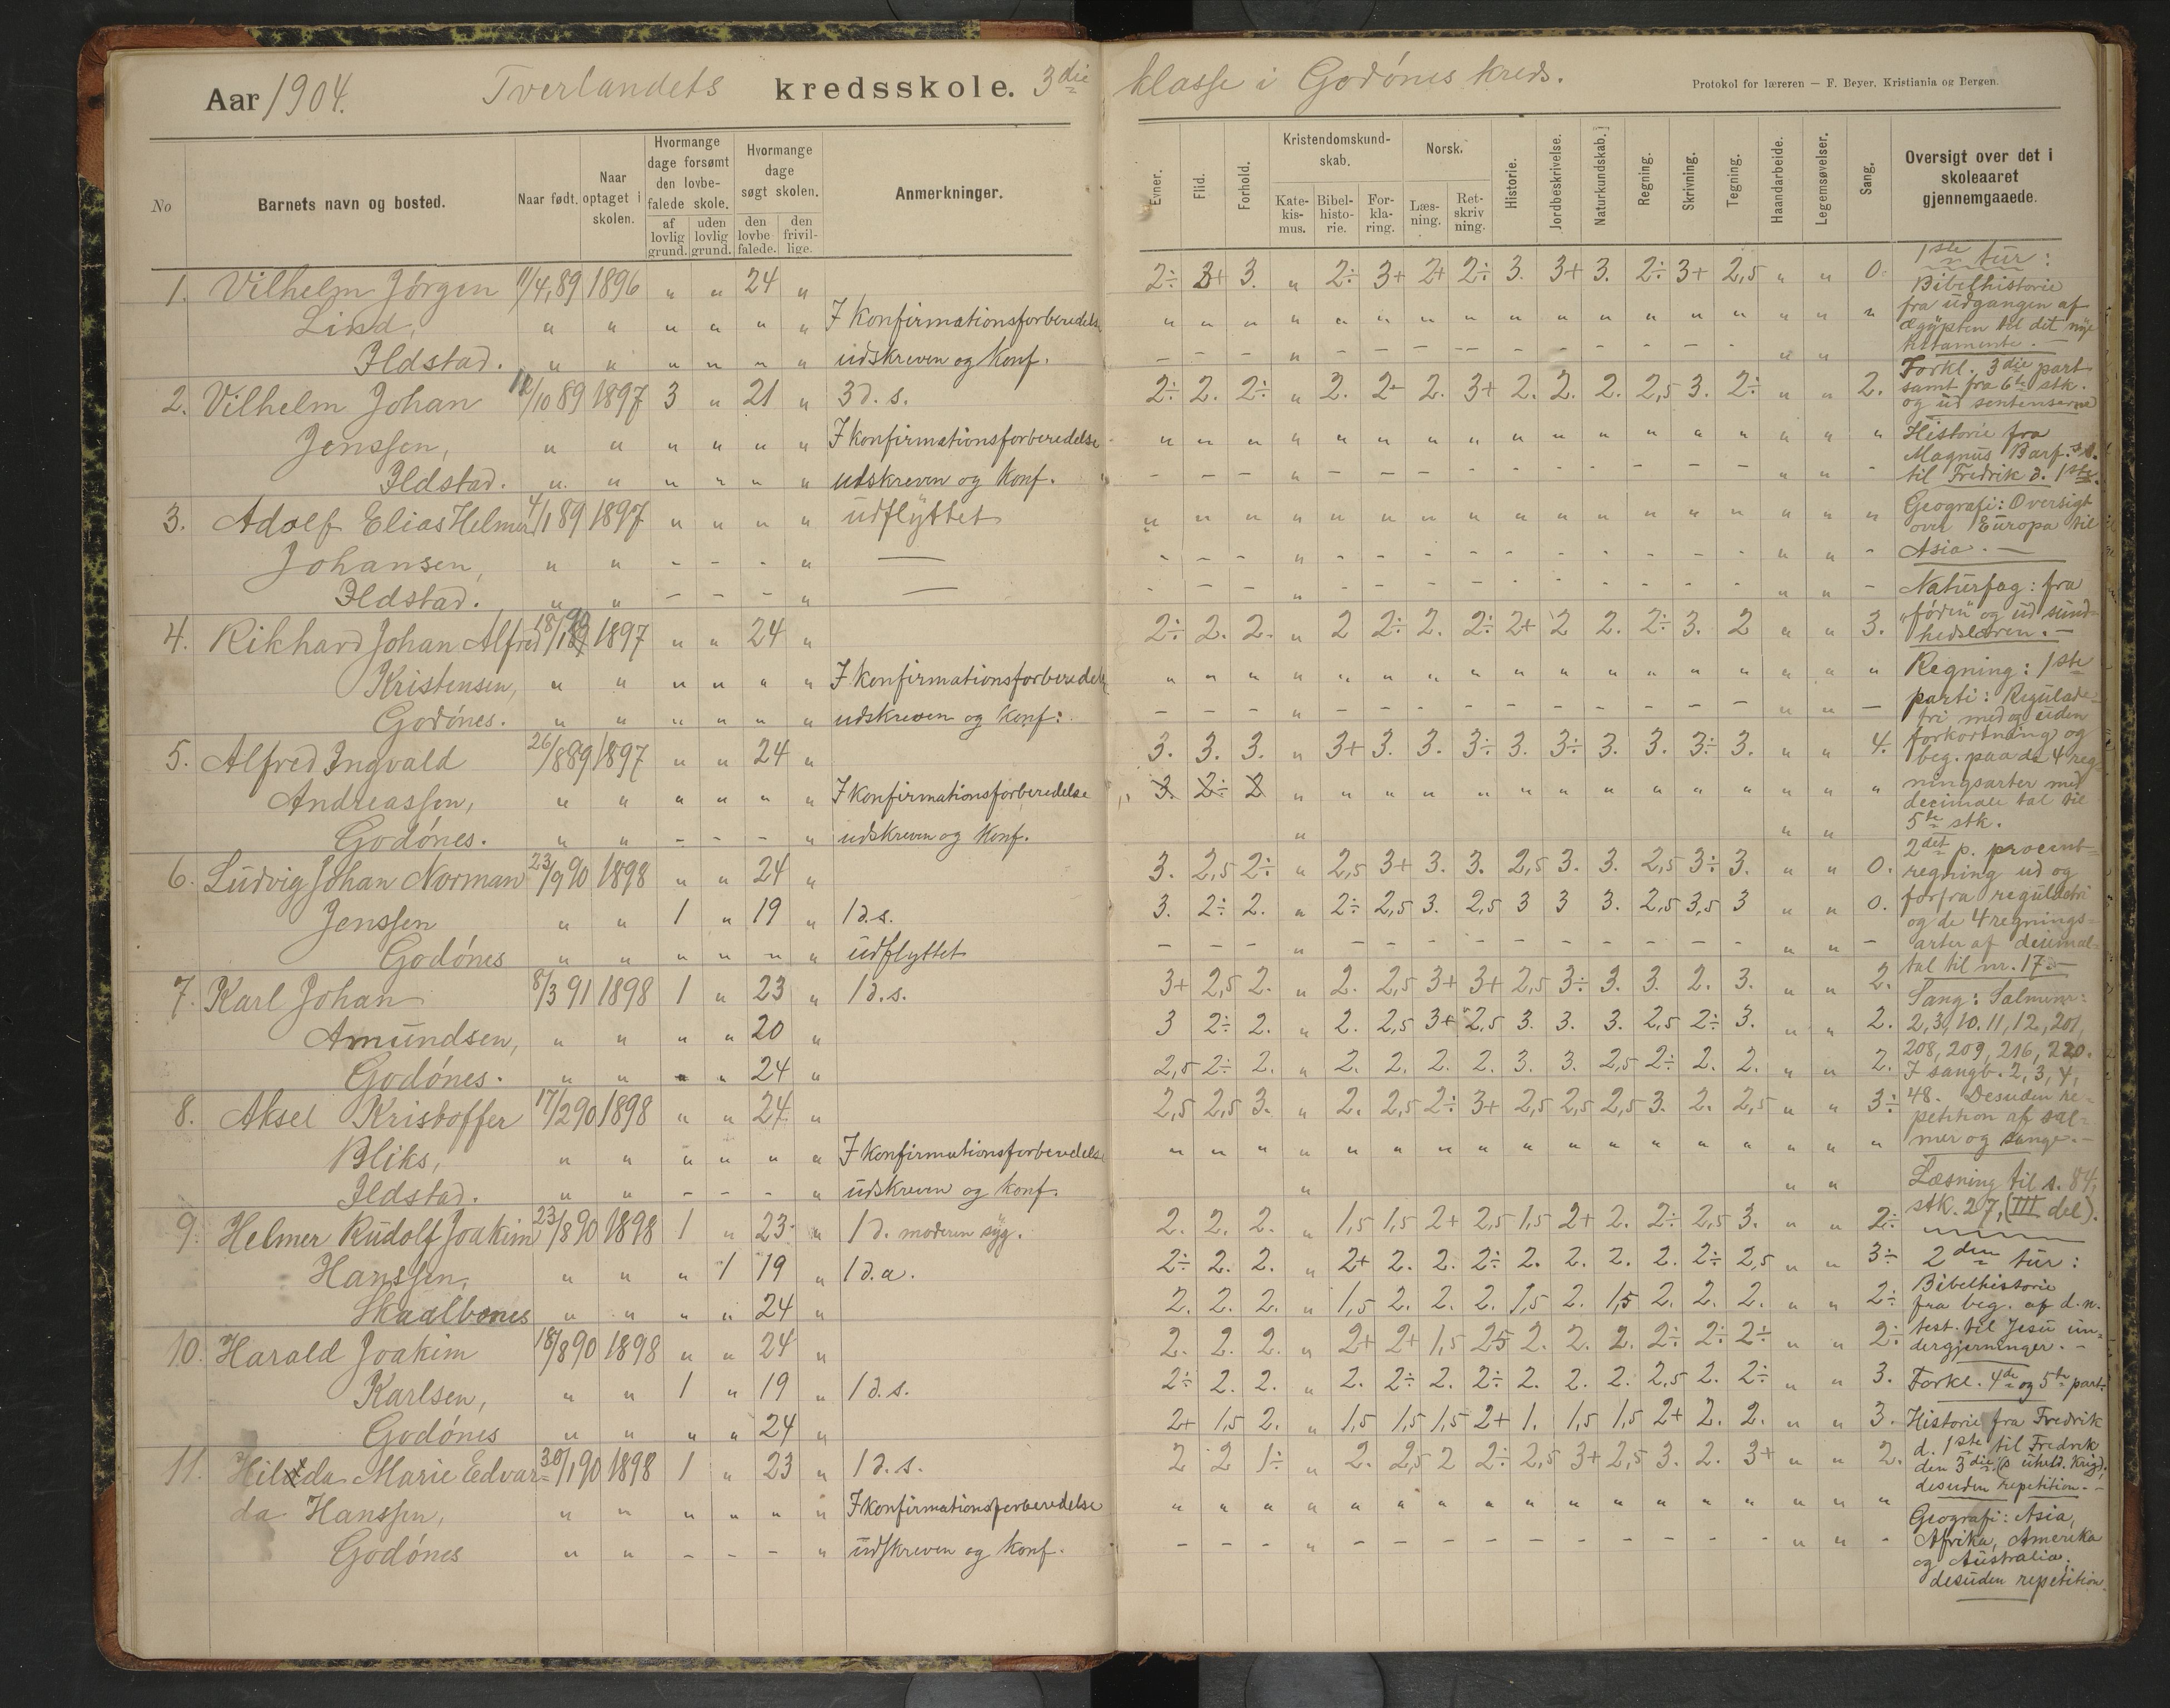 Aar 1904. Tverlandets kredsskole. 3die klasse i Godønes kreds.
Protokol for læreren — F. Beyer, Kristiania og Bergen.
No
Barnets navn og bosted.
Naar født.
Naar optaget i skolen.
Hvormange dage forsømt den lovbefalede skole.
af lovlig grund.
uden lovlig grund.
Hvormange dage søgt skolen.
den lovbefalede.
den frivillige.
Anmerkninger.
Evner.
Flid.
Forhold.
Kristendomskundskab.
Katekismus.
Bibelhistorie.
Forklaring.
Norsk.
Læsning.
Retskrivning.
Historie.
Jordbeskrivelse.
Naturkundskab.]
Regning.
Skrivning.
Tegning.
Haandarbeide.
Legemsøvelser.
Sang.
Oversigt over det i skoleaaret gjennemgaaede.
1. Vilhelm Jörgen 11/4,89 1896 " " 24 " 2÷ 3+ 3. " 2÷ 3+ 2+ 2÷ 3. 3+ 3. 2÷ 3+ 2,5 " " 0.
Lind, " " " " " " I konfirmationsforberedelse " " " " " " " " " " " " " " " " "
Ildstad. " " " " " " udskreven og konf. – – – " – – – – – – – – – – " "
2. Vilhelm Johan 12/10 89 1897 3 " 21 " 3 d. s. 2÷ 2. 2÷ " 2. 2÷ 2. 3+ 2. 2. 2. 2,5 3. 2÷ " " 2.
Jenssen, " " " " " " I konfirmationsforberedelse " " " " " " " " " " " " " " " " "
Ildstad. " " " " " " udskreven og konf. – – – " – – – – – – – – – – " " –
3. Adolf Elias Helmer 4/1 89 1897 " " " " udflyttet " " " " " " " " " " " " " " " " "
Johansen, " " - - - " — - - - " - - - - - - - - - - " " -
Ildstad. " " - - - " — - - - " - - - - - - - - - - " " -
4. Rikhard Johan Alfred 18/1 90 1897 " " 24 " 2÷ 2. 2. " 2 2÷ 2. 2÷ 2+ 2 2. 2÷ 3. 2 " " 3.
Kristensen, " " " " " " I konfirmationsforberedelse " " " " " " " " " " " " " " " " "
Godønes. " " " " " " udskreven og konf: – – – " – – – – – – – – – – " " –
5. Alfred Ingvald 26/8 89 1897 " " 24 " 3. 3. 3. " 3+ 3. 3. 3÷ 3. 3÷ 3. 3. 3÷ 3. " " 4.
Andreassen, " " " " " " I konfirmationsforberedelse 3. 2÷ 2 " " " " " " " " " " " " " "
Godønes. " " - - - " udskreven og konf. " " "
6. Ludvig Johan Norman 23/9 90 1898 " " 24 " 3. 2,5 2÷ " 2,5 3+ 3. 3. 2,5 3. 3. 2,5 3÷ 3. " " 0.
Jenssen " " 1 " 19 " 1 d. s. 3. 2÷ 2. " 2÷ 2,5 3. 2,5 3 3 3. 2,5 3,5 3 " " 0.
Godønes " " " " " " udflyttet – – – " – – – – – – – – – – " " –
7. Karl Johan 8/3 91 1898 1 " 23 " 1 d. s. 3+ 2,5 2. " 2. 2,5 3+ 3+ 2,5 3÷ 3. 3. 2. 3. " " 2.
Amundsen, " " " " 20 " 3 2÷ 2. " 2. 2,5 3+ 2,5 3. 3. 3. 2,5 2÷ 3. " " 2.
Godønes. " " " " 24 " 2,5 2÷ 2. " 2. 2. 2. 2. 3. 3. 2,5 2÷ 2. 2. " " 2.
8. Aksel Kristoffer 17/2 90 1898 " " 24 " 2,5 2,5 3. " 2. 2,5 2÷ 3+ 2,5 2,5 2,5 3. 2. 2,5 " " 3÷
Bliks, " " " " " " I konfirmationsforberedelse " " " " " " " " " " " " " " " " "
Ildstad. " " - - - " udskreven og konf. " " "
9. Helmer Rudolf Joakim 23/8 90 1898 1 " 23 " 1 d. moderen syg. 2. 2. 2. " 1,5 1,5 2+ 2,5 1,5 2+ 2. 2÷ 2,5 3. " " 2÷
Hanssen, " " " 1 19 " 1 d. a. 2÷ 2. 2. " 2+ 2. 2. 2÷ 2. 2. 2. 2. 2÷ 2,5 " " 3÷
Skaalbones " " " " 24 " 2. 2. 2. " 1,5 2. 2. 2. 1,5 2. 1,5 2. 2. 2. " " 2÷
10. Harald Joakim 18/8 90 1898 " " 24 " 2. 2. 2. " 2+ 2+ 1,5 25 2. 2. 2. 2÷ 2÷ 2÷ " " 2÷
Karlsen, " " 1 " 19 " 1 d. s. 2÷ 2. 2. " 2. 2÷ 2. 2÷ 2. 2. 2. 2,5 2. 2÷ " " 3.
Godønes " " " " 24 " 2+ 1,5 2. " 1,5 1,5 1,5 2+ 1. 1,5 1,5 2+ 2. 2. " " 3.
11. Hilda Marie Edvar- 30/1 90 1898 1 " 23 " 1 d. s. 2 2 1÷ " 2. 2,5 2 2÷ 2,5 3+ 2,5 3. 2. 3+ " " 2.
da Hanssen, " " " " " " I konfirmationsforberedelse " " " " " " " " " " " " " " " " "
Godønes " " - - - " udskreven og konf. – – – " – – – – – – – – – – " " -
1ste tur:
Bibelhistorie
fra udgangen af
Ægypten til det nye
testamente. —
Forkl. 3die part
samt fra 6te stk.
og ud sentenserne
Historie fra
Magnus Barf.
til Fredrik d. 1ste.
Geografi: Oversigt
over Europa til
Asia. —
Naturfag: fra
"føden" og ud sund-
hedslæren. —
Regning: 1ste
parti: Regulade-
tri med og uden
forkortning og
beg. paa de 4 reg-
ningsarter med
decimale tal til
5te stk.
2det p. procent-
regning ud og
forfra reguladetri
og de 4 regnings-
arter af desimal-
tal til nr. 17. —
Sang: Salmenr:
2, 3, 10. 11, 12, 201,
208, 209, 216, 220.
I sangb. 2, 3, 4,
48. Desuden re-
petition af sal-
mer og sange. —
Læsning til s. 84,
stk. 27, (III del).
2den tur:
Bibelhistorie
fra beg. af d. n.
test. til Jesu un-
dergjerninger. —
Forkl. 4de og 5te part.
Historie fra Fredrik
d. 1ste til Fredrik
den 3die
desuden repetition. —
Geografi: Asia,
Afrika, Amerika
og Australia,
desuden repetition.